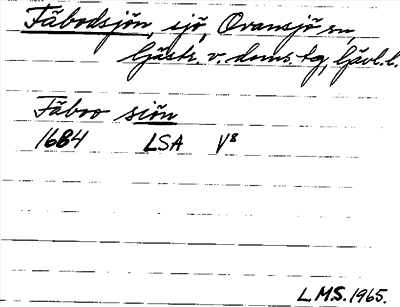 Fäbodsjön, sjö, Ovansjö sn,
Gästr. v. doms. tg, Gävl. l.
Fäboo siön
1684 LSA V8
L.M.S. 1965.